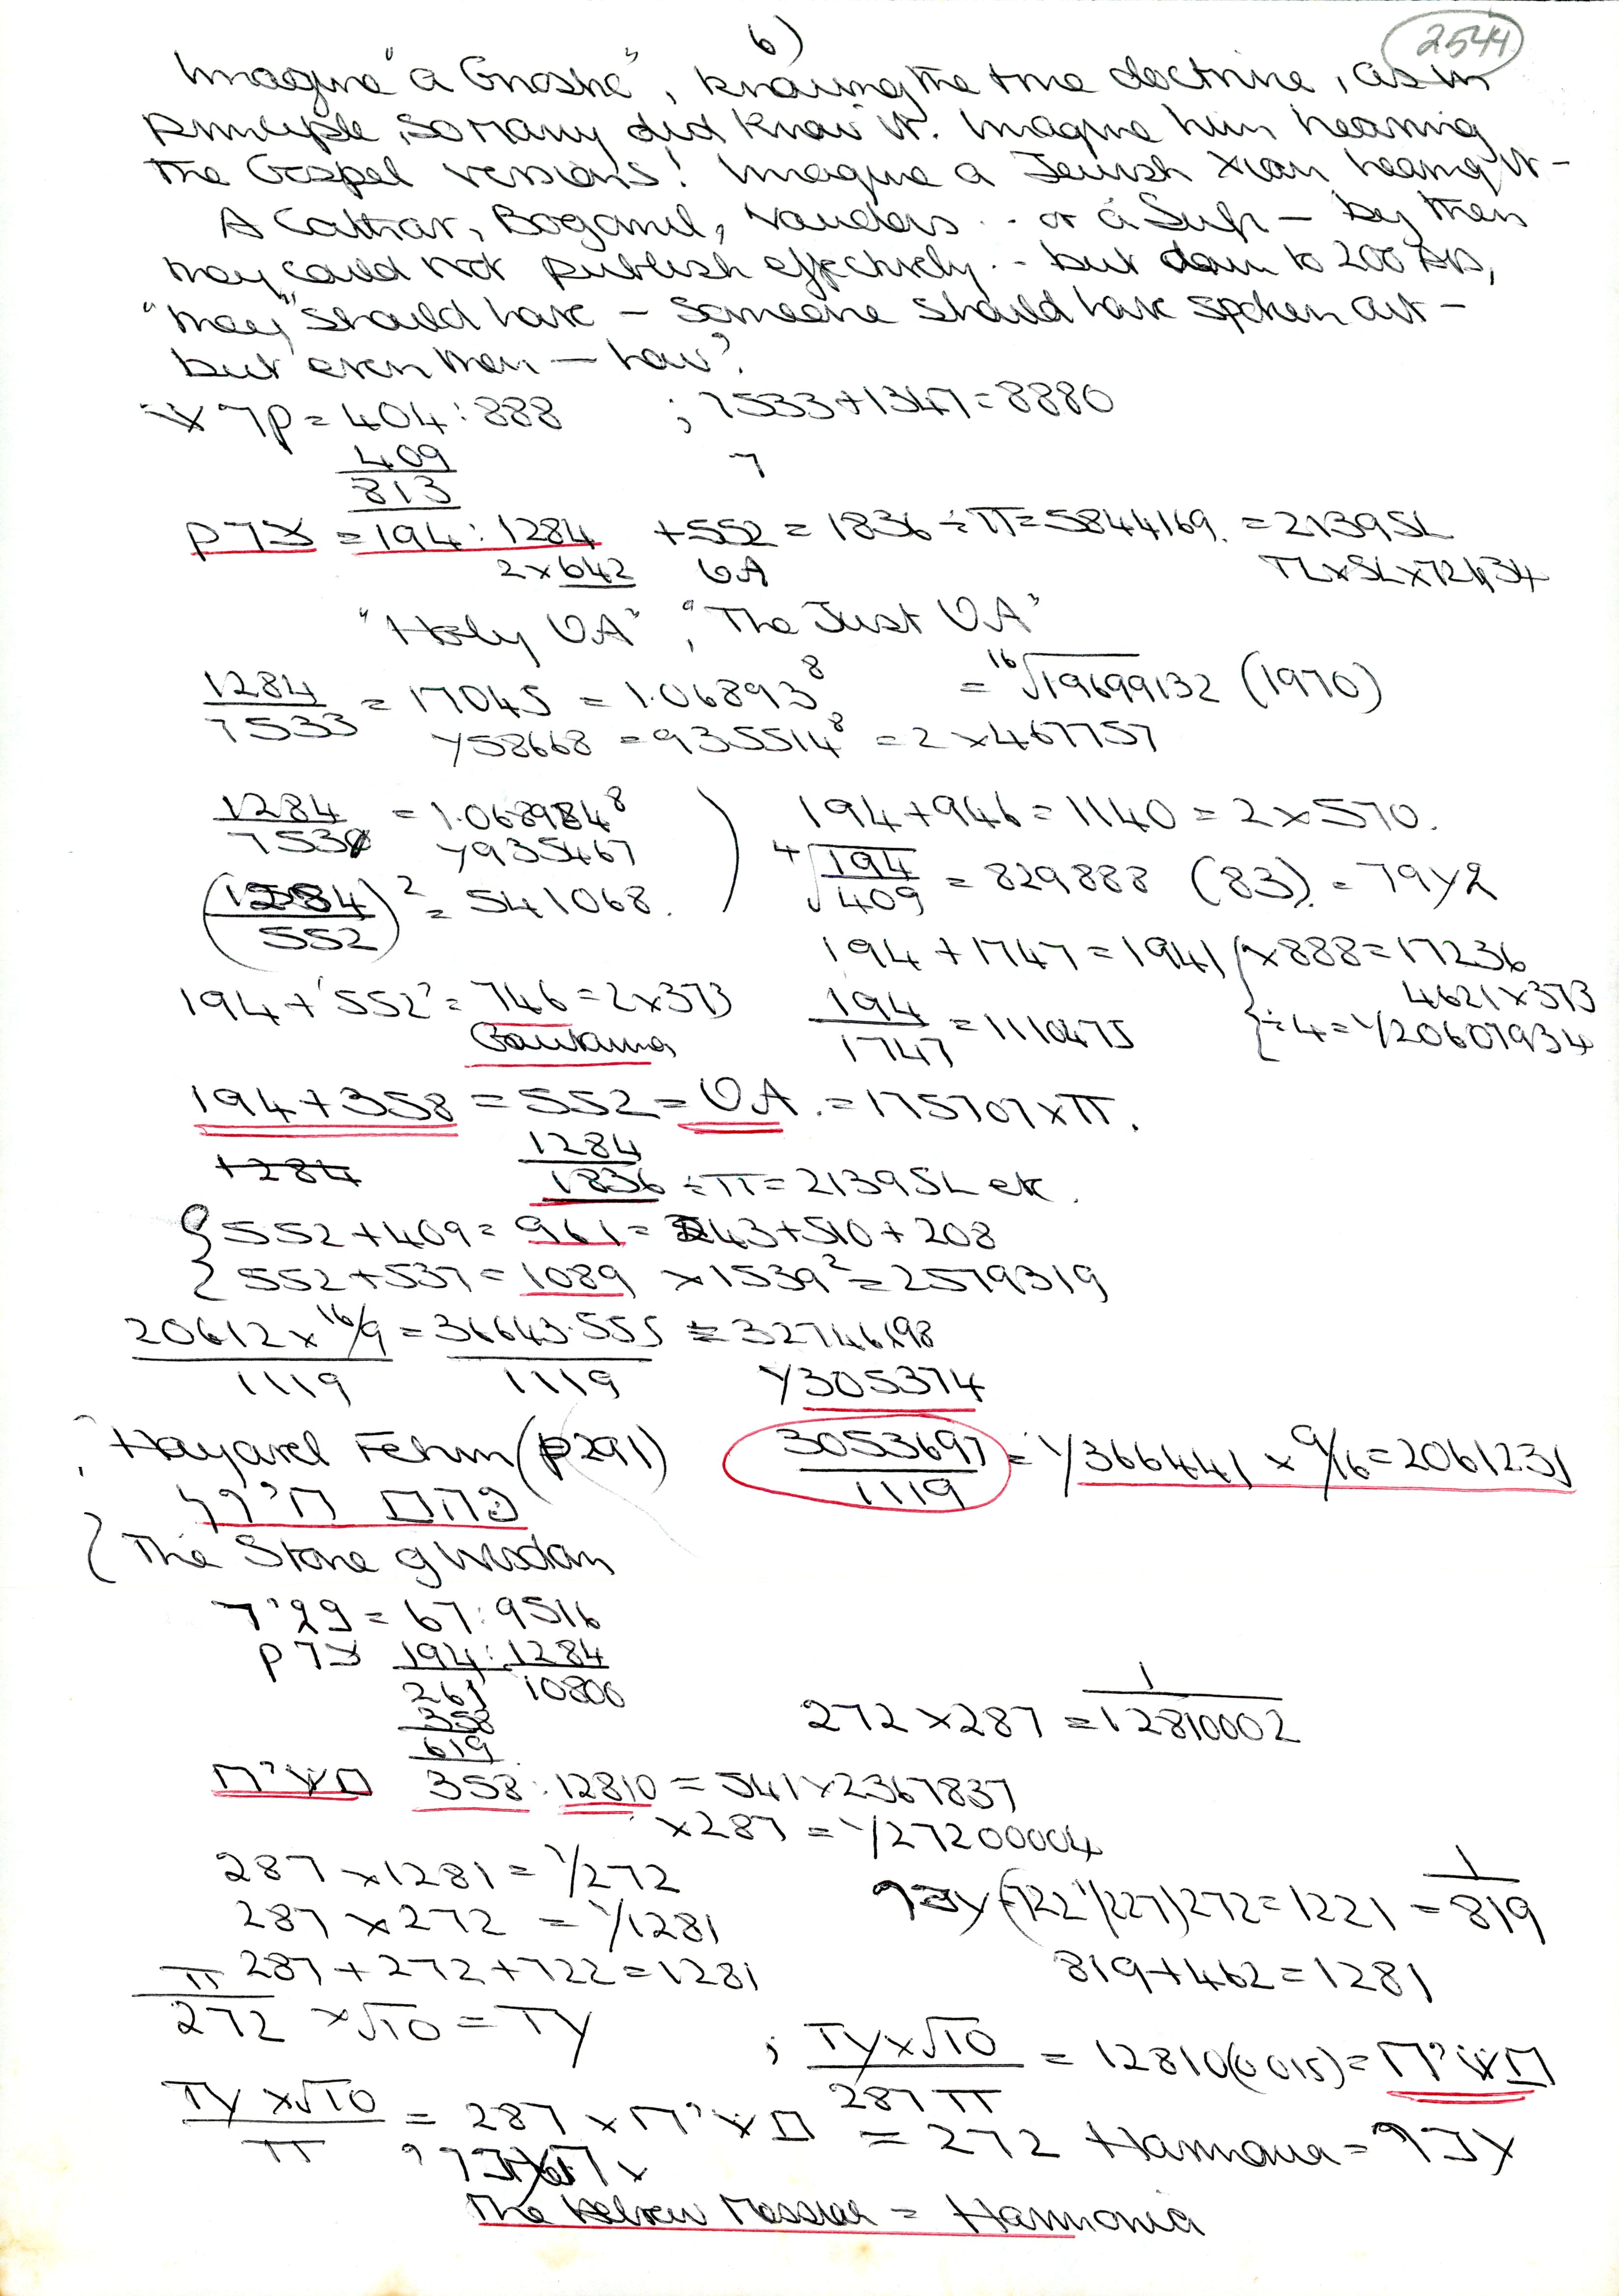 6)
2544
Imagine "a Gnostic", knowing the true doctrine, as in
principle, so many did know it. Imagine him hearing
the Gospel versions! Imagine a Jewish Xian hearing it -
A Cathar, Bogomil, Vaudois .. or a Sufi - by then
they could not publish effectively .. but down to 200 AD,
"they" should have - someone should have spoken out -
but even then - how?
= 404 : 888 ; 7533 + 1347 = 8880
409
813
צדק = 194 : 1284 + 552 = 1836 ÷ π = 5844169. = 2139SL
2 x 642 VA
"Holy VA", "The Just VA"
1284/7533 = 17045 = 1.06893⁸ = ¹⁶√19699132 (1970)
Y58668 = 935514⁸ = 2 x 467757
1284 = 1.068984⁸
Y935467
(1284/552)² = 541068.
194 + 946 = 1140 = 2 x 570.
⁴√194/409 = 829888 (83). = 79Y2
194 + 1747 = 1941 { x 888 = 17236
4621 x 373
194 + '552' = 746 = 2 x 373
Gautama
194/1747 = 1110475
÷ 4 = 1/20607934
194 + 358 = 552 = VA. = 175707 x π.
1284
1836 ÷ π = 2139SL etc.
552 + 409 = 961 = 243 + 510 + 208
552 + 537 = 1089 x 1539² = 2579319
20612 x 16/9 / 1119 = 36643.555 / 1119 = 32746698
Y305374
Hayarel Fehm (p291)
3053697/1119 = 1/366441 x 9/16 = 2061231
The Stone of Wisdom
= 67 : 9516
צדק 194 : 1284
261 10800
358
619
272 x 287 = 1/12810002
משיח 358 : 12810 = 541 x 2367837
x 287 = 1/27200004
287 x 1281 = 1/272
287 x 272 = 1/1281
(722 1/227) 272 = 1221 = 1/819
287 + 272 + 722 = 1281
819 + 462 = 1281
π/272 x √10 = TY
; TY x √10 / 287 π = 12810(0015) = משיח
TY x √10 / π = 287 x משיח = 272 Harmonia =
The Hebrew Messiah = Harmonia